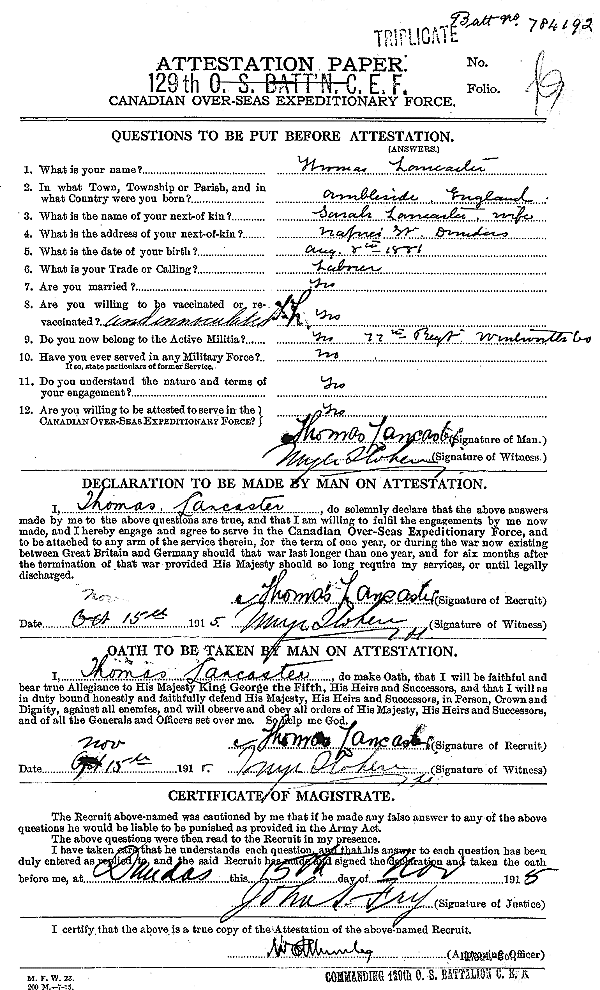 Batt no. 784192
TRIPLICATE
ATTESTATION PAPER.
No.
129th O. S. BATT'N. C. E. F.
Folio.
CANADIAN OVER-SEAS EXPEDITIONARY FORCE.
QUESTIONS TO BE PUT BEFORE ATTESTATION.
(ANSWERS.)
1. What is your name? Thomas Lancaster
2. In what Town, Township or Parish, and in
what Country were you born? Ambleside, England.
3. What is the name of your next-of kin? Sarah Lancaster, wife
4. What is the address of your next-of-kin? St. Dundas
5. What is the date of your birth? Aug. 8th 1881
6. What is your Trade or Calling? Laborer
7. Are you married? Yes
8. Are you willing to be vaccinated or re-
vaccinated? and innoculated Yes
9. Do you now belong to the Active Militia? Yes 77th Regt Wentworth Co
10. Have you ever served in any Military Force? No
If so, state particulars of former Service.
11. Do you understand the nature and terms of
your engagement? Yes
12. Are you willing to be attested to serve in the
CANADIAN OVER-SEAS EXPEDITIONARY FORCE? Yes
Thomas Lancaster (Signature of Man.)
(Signature of Witness.)
DECLARATION TO BE MADE BY MAN ON ATTESTATION.
I, Thomas Lancaster, do solemnly declare that the above answers
made by me to the above questions are true, and that I am willing to fulfil the engagements by me now
made, and I hereby engage and agree to serve in the Canadian Over-Seas Expeditionary Force, and
to be attached to any arm of the service therein, for the term of one year, or during the war now existing
between Great Britain and Germany should that war last longer than one year, and for six months after
the termination of that war provided His Majesty should so long require my services, or until legally
discharged.
Nov Thomas Lancaster (Signature of Recruit)
Date Oct 15th 1915 (Signature of Witness)
OATH TO BE TAKEN BY MAN ON ATTESTATION.
I, Thomas Lancaster, do make Oath, that I will be faithful and
bear true Allegiance to His Majesty King George the Fifth, His Heirs and Successors, and that I will as
in duty bound honestly and faithfully defend His Majesty, His Heirs and Successors, in Person, Crown and
Dignity, against all enemies, and will observe and obey all orders of His Majesty, His Heirs and Successors,
and of all the Generals and Officers set over me. So help me God.
Nov Thomas Lancaster (Signature of Recruit)
Date Oct 15th 1915 (Signature of Witness)
CERTIFICATE OF MAGISTRATE.
The Recruit above-named was cautioned by me that if he made any false answer to any of the above
questions he would be liable to be punished as provided in the Army Act.
The above questions were then read to the Recruit in my presence.
I have taken care that he understands each question, and that his answer to each question has been
duly entered as replied to, and the said Recruit has made and signed the declaration and taken the oath
before me, at Dundas this 15th day of Nov 1915
John S. Fry (Signature of Justice)
I certify that the above is a true copy of the Attestation of the above-named Recruit.
(Approving Officer)
M. F. W. 23.
200 M.-7-15.
COMMANDING 129th O. S. BATTALION C. E. F.